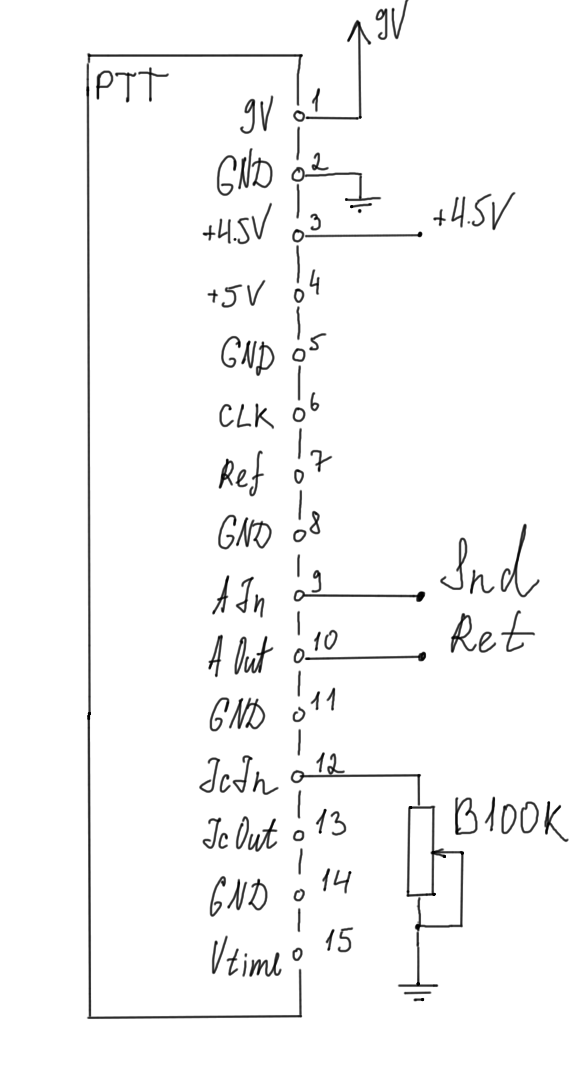 9V
PTT
9V 1
GND 2
+4.5V 3 +4.5V
+5V 4
GND 5
CLK 6
Ref 7
GND 8
A In 9 Snd
A Out 10 Ret
GND 11
IcIn 12
IcOut 13 B100K
GND 14
Vtime 15